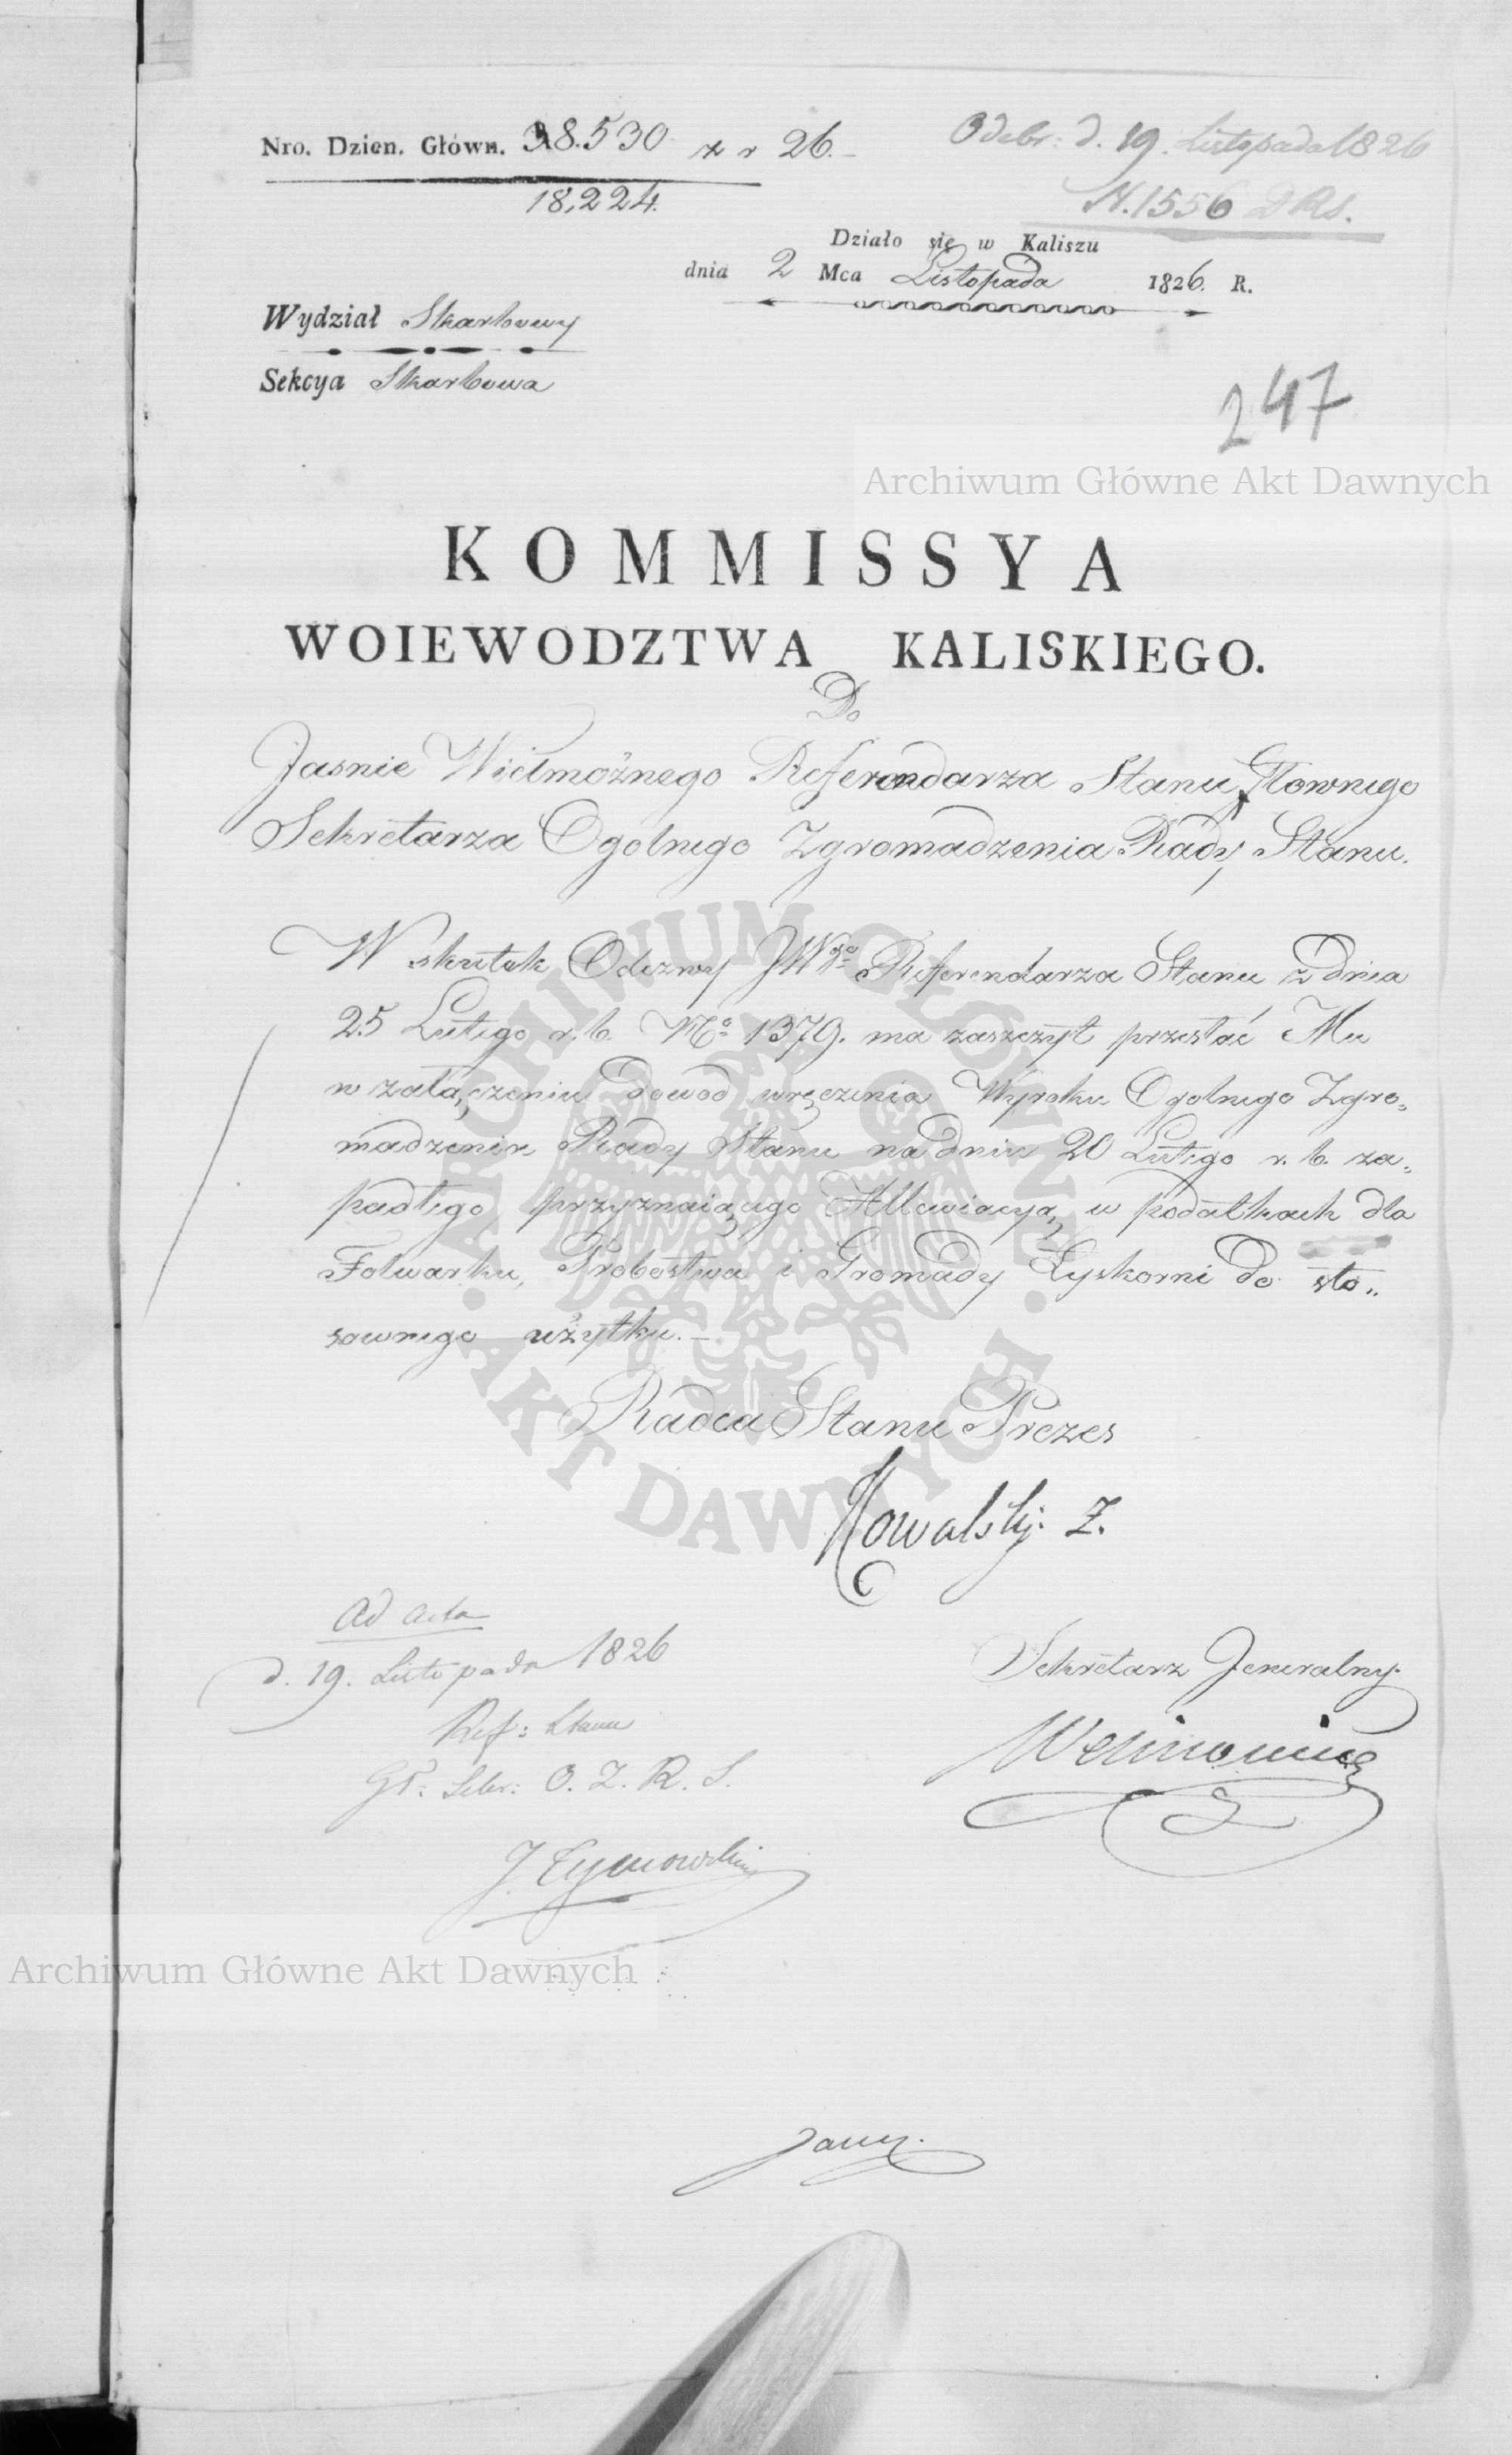 Nro. Dzien. Główn. 38.530 z r 26.
18,224.
Odebr: d. 19. Listopada 1826
N. 1556 DRS.
Działo się w Kaliszu
dnia 2 Mca Listopada 1826. R.
Wydział Skarbowy
Sekcya Skarbowa
247
Archiwum Główne Akt Dawnych
KOMMISSYA
WOIEWODZTWA KALISKIEGO.
Do
Jasnie Wielmożnego Referendarza Stanu Głownego
Sekretarza Ogolnego Zgromadzenia Rady Stanu.
W skutek Odezwy JWgo Referendarza Stanu z dnia
25 Lutego r. b. No 1379. ma zaszczyt przesłać Mu
w załączeniu dowod wręczenia Wyroku Ogolnego Zgro=
madzenia Rady Stanu na dniu 20 Lutego r. b. za=
padłego przyznaiącego Allewiacyą w podatkach dla
Folwarku, Probostwa i Gromady Łyskorni do sto„
sownego użytku.
Radca Stanu Prezes
Kowalski. Z.
Ad acta
d. 19. Listopada 1826
Ref: Stanu
Gł: Sekr: O. Z. R. S.
J. Tymowski
Sekretarz Jeneralny.
Archiwum Główne Akt Dawnych
ARCHIWUM GŁÓWNE
AKT DAWNYCH